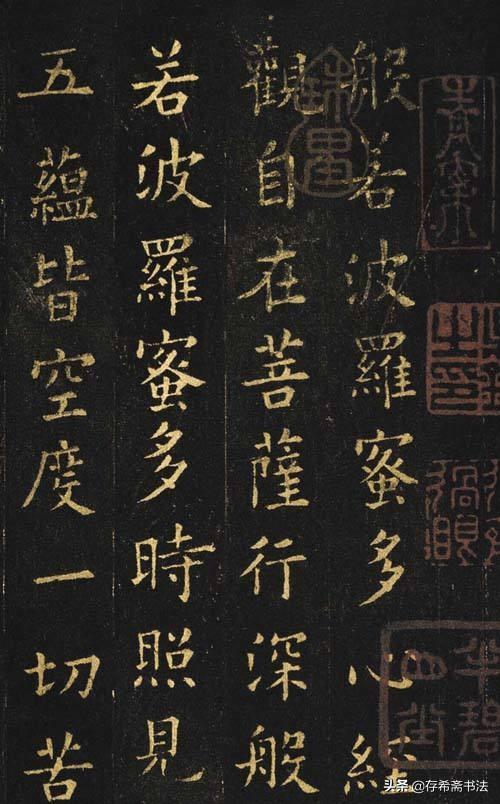 般若波羅蜜多心経
觀自在菩薩行深般
若波羅蜜多時照見
五蘊皆空度一切苦
头条 @存希斋书法